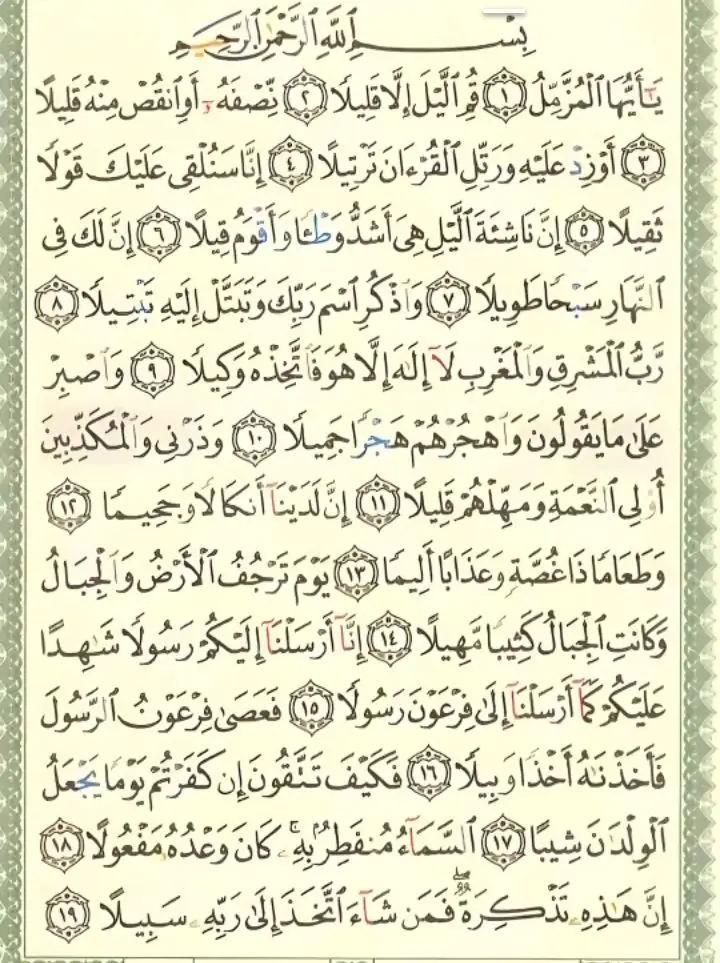 بِسْمِ ٱللَّهِ ٱلرَّحْمَٰنِ ٱلرَّحِيمِ
يَٰٓأَيُّهَا ٱلْمُزَّمِّلُ ١ قُمِ ٱلَّيْلَ إِلَّا قَلِيلًا ٢ نِّصْفَهُۥٓ أَوِ ٱنقُصْ مِنْهُ قَلِيلًا
٣ أَوْ زِدْ عَلَيْهِ وَرَتِّلِ ٱلْقُرْءَانَ تَرْتِيلًا ٤ إِنَّا سَنُلْقِى عَلَيْكَ قَوْلًا
ثَقِيلًا ٥ إِنَّ نَاشِئَةَ ٱلَّيْلِ هِىَ أَشَدُّ وَطْـًٔا وَأَقْوَمُ قِيلًا ٦ إِنَّ لَكَ فِى
ٱلنَّهَارِ سَبْحًا طَوِيلًا ٧ وَٱذْكُرِ ٱسْمَ رَبِّكَ وَتَبَتَّلْ إِلَيْهِ تَبْتِيلًا ٨
رَّبُّ ٱلْمَشْرِقِ وَٱلْمَغْرِبِ لَآ إِلَٰهَ إِلَّا هُوَ فَٱتَّخِذْهُ وَكِيلًا ٩ وَٱصْبِرْ
عَلَىٰ مَا يَقُولُونَ وَٱهْجُرْهُمْ هَجْرًا جَمِيلًا ١٠ وَذَرْنِى وَٱلْمُكَذِّبِينَ
أُو۟لِى ٱلنَّعْمَةِ وَمَهِّلْهُمْ قَلِيلًا ١١ إِنَّ لَدَيْنَآ أَنكَالًا وَجَحِيمًا ١٢
وَطَعَامًا ذَا غُصَّةٍ وَعَذَابًا أَلِيمًا ١٣ يَوْمَ تَرْجُفُ ٱلْأَرْضُ وَٱلْجِبَالُ
وَكَانَتِ ٱلْجِبَالُ كَثِيبًا مَّهِيلًا ١٤ إِنَّآ أَرْسَلْنَآ إِلَيْكُمْ رَسُولًا شَٰهِدًا
عَلَيْكُمْ كَمَآ أَرْسَلْنَآ إِلَىٰ فِرْعَوْنَ رَسُولًا ١٥ فَعَصَىٰ فِرْعَوْنُ ٱلرَّسُولَ
فَأَخَذْنَٰهُ أَخْذًا وَبِيلًا ١٦ فَكَيْفَ تَتَّقُونَ إِن كَفَرْتُمْ يَوْمًا يَجْعَلُ
ٱلْوِلْدَٰنَ شِيبًا ١٧ ٱلسَّمَآءُ مُنفَطِرٌۢ بِهِۦ ۚ كَانَ وَعْدُهُۥ مَفْعُولًا ١٨
إِنَّ هَٰذِهِۦ تَذْكِرَةٌ ۖ فَمَن شَآءَ ٱتَّخَذَ إِلَىٰ رَبِّهِۦ سَبِيلًا ١٩